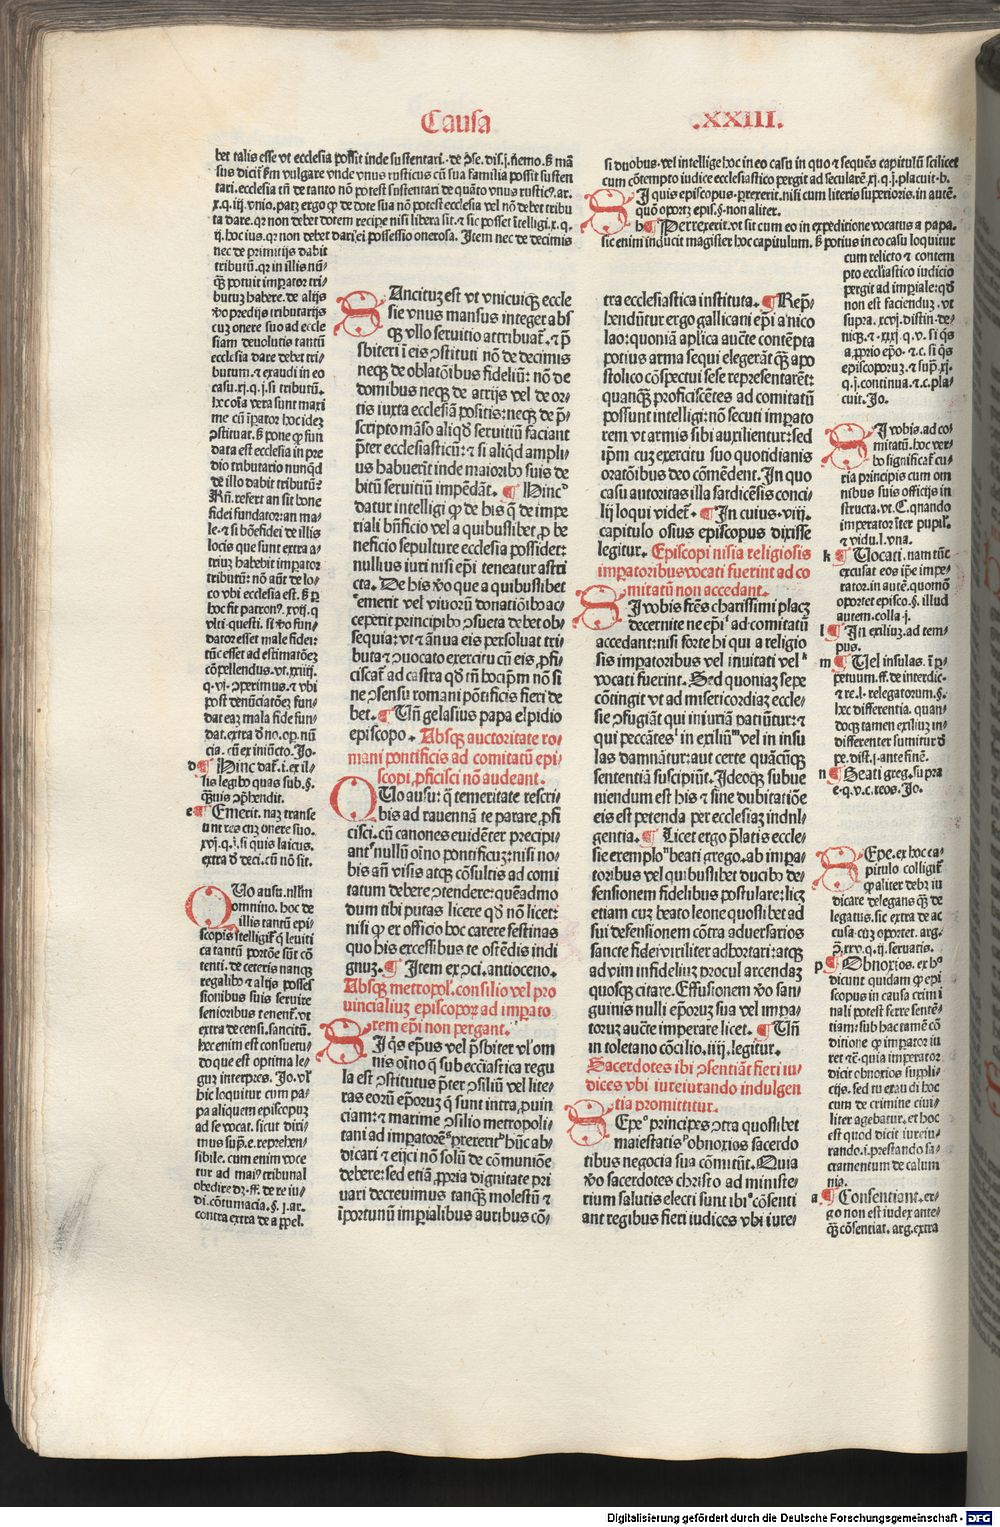 Causa
.XXIII.
bet talis esse vt ecclesia possit inde sustentari. de ꝯse. dis. j. nemo. sꝫ man
sus dicit̃ ẜm vulgare vnde vnus rusticus cũ sua familia possit susten
tari. ecclesia tñ de tanto nõ potest sustentari de quãto vnus rusticꝰ. ar.
ta dare. qꝛ non debet dotem recipe nisi libera sit. ⁊ sic posset ĩtelligi. x. q.
ij. hoc ius. qꝛ non debet dari ei possessio onerosa. Item nec de decimis
nec de primitijs dabit
tributũ. qꝛ in illis nũ⸗
qꝫ potuit imꝑator tri⸗
butuꝫ habere. de alijs
ṽo predijs tributarijs
cuꝫ onere suo ad eccle
siam deuolutis tantũ
ecclesia dare debet tri⸗
butum. ⁊ exaudi in eo
casu. xj. q. j. si tributũ.
data est ecclesia in pre
dio tributario nunqd
de illo dabit tributũ?
Rñ. refert an sit bone
fidei fundator: an ma⸗
le. ⁊ si bõefidei de illis
locis que sunt extra a⸗
trium habebit imꝑator
tributũ: nõ aũt de lo⸗
co vbi ecclesia est. sꝫ ꝑ
vlti. questi. si ṽo fun⸗
dator esset male fidei:
tũc esset ad estimatõeꝫ
cõpellendus. vt. xxiiij.
post denũciatõeꝫ fun⸗
dat eaꝫ mala fide fun⸗
cia. cũ ex iniũcto. Jo.
d ¶ Hinc dat̃. i. ex il⸗
lis legibꝰ quas sub. §.
e ¶ Emerit. naꝫ transe
unt res cuꝫ onere suo.
xvj. q. j. si quis laicus.
extra ð deci. cũ nõ sit.
QUo ausu. nllm̃
omnino. hoc de
illis tantũ epi⸗
scopis ĩtelligit̃ q̃ leuiti
ca tantũ portõe sũt cõ
tenti. de ceteris nanqꝫ
regalibꝰ ⁊ alijs posses
sionibus suis seruire
senioribus tenent̃. vt
extra de censi. sancitũ.
hec enim est consuetu⸗
do que est optima le⸗
guꝫ interpres. Jo. vl̓
hic loquitur cum pa⸗
pa aliquem episcopuꝫ
ad se vocat. sicut dixi⸗
mus supra. e. reprehen⸗
sibile. cum enim voce
tur ad maiꝰ tribunal
obedire dꝫ. ff. de re iu⸗
di. cõtumacia. §. j. ar.
contra extra de appel.
SAncituꝫ est vt vnicuiqꝫ eccle
sie vnus mansus integer abs
qꝫ vllo seruitio attribuat̃. ⁊ p̃
sbiteri ĩ eis ꝯstituti nõ de decimis
neqꝫ de oblatõibus fideliũ: nõ de
domibus neqꝫ de atrijs vel de or⸗
tis iuxta ecclesiã positis: neqꝫ de p̃⸗
scripto mãso aliqð seruitiũ faciant
p̃ter ecclesiasticũ: ⁊ si aliqd ampli⸗
us habuerit inde maioribꝰ suis de
bitũ seruitiũ impẽdãt. ¶ Hincᵒ
datur intelligi ꝙ de his q̃ de impe
riali bñficio vel a quibuslibet ꝓ be
neficio sepulture ecclesia possidet:
nullius iuri nisi ep̃i teneatur astri
cta. De his ṽo que a quibuslibet
ᵉemerit vel viuorũ donatiõibꝰ ac⸗
ceperit principibꝰ ꝯsueta debet ob⸗
sequia: vt ⁊ ãnua eis persoluat tri⸗
buta ⁊ ꝯuocato exercitu cũ eis ꝓfi⸗
ciscat̃ ad castra qð tñ hocip̃m nõ si
ne ꝯsensu romani põtificis fieri de
bet. ¶ Uñ gelasius papa elpidio
episcopo. Absqꝫ auctoritate ro⸗
mani pontificis ad comitatũ epi⸗
scopi ꝓficisci nõ audeant.
QUo ausu: q̃ temeritate rescri⸗
bis ad rauennã te parare ꝓfi
cisci. cũ canones euidẽter precipi⸗
antᶠ nullũ oĩno pontificuꝫ: nisi no⸗
bis añ visis atqꝫ cõsultis ad comi
tatum debere ꝯtendere: quẽadmo
dum tibi putas licere qð nõ licet:
nisi ꝙ ex officio hoc carere festinas
quo his excessibus te ostẽdis indi
gnuꝫ. ¶ Item ex ꝯci. antioceno.
Absqꝫ metropol̓. consilio vel pro
uincialiuꝫ episcopoꝝ ad imꝑato
rem ep̃i non pergant.
SI q̃s ep̃us vel p̃sbiter vl̓ om
nis oĩno q̃ sub ecclesiastica regu
la est ꝯstitutus p̃ter ꝯsiliũ vel lite⸗
ras eorũ ep̃oruꝫ q̃ sunt intra ꝓuin
ciam: ⁊ maxime ꝯsilio metropoli⸗
tani ad imꝑatorẽ ꝑrexerit: hũc ab⸗
dicari ⁊ eijci nõ solũ de cõmuniõe
debere: sed etiã ꝓpria dignitate pri
uari decreuimus tanqꝫ molestũ ⁊
ĩportunũ imꝑialibus auribus cõ⸗
si duobus. vel intellige hoc in eo casu in quo ⁊ sequẽs capitulũ scilicet
cum cõtempto iudice ecclesiastico pergit ad secularẽ xj. q. j. placuit. b.
SI quis episcopus. ꝑrexerit. nisi cum literis superioris. in autẽ.
quõ oporꝫ epis. §. non aliter.
h ¶ Perrexerit. vt sit cum eo in expeditione vocatus a papa.
sic enim inducit magister hoc capitulum. sꝫ potius in eo casu loquitur
cum relicto ⁊ contem
pto eccl̓iastico iudicio
pergit ad imꝑiale: qð
non est faciendũꝫ. vt
supra. xcvj. distin. de⸗
niqꝫ. ⁊. xxj. q. v. si q̃s
a ꝓprio ep̃o. ⁊. c. si q̃s
episcoporuꝫ. ⁊ sup̃. xj.
q. j. continua. ⁊. c. pla⸗
cuit. Jo.
tra ecclesiastica instituta. ¶ Rep̃⸗
hendũtur ergo gallicani ep̃i a nico
lao: quoniã apl̓ica aucte contẽpta
potius arma sequi elegerãt qꝫ apo
stolico cõspectui sese representarẽt:
quanqꝫ proficiscẽtes ad comitatũ
possunt intelligi: nõ secuti imꝑato
rem vt armis sibi auxilientur: sed
ip̃m cuꝫ exercitu suo quotidianis
oratõibus deo cõmẽdent. In quo
casu autoritas illa sardicẽsis conci⸗
lij loqui videt̃. ¶ In cuius. viij.
capitulo osius episcopus dixisse
legitur. Episcopi nisi a religiosis
imꝑatoribus vocati fuerint ad co
mitatũ non accedant.
SI vobis fr̃es charissimi placꝫ
decernite ne ep̃iⁱ ad comitatũ
accedant: nisi forte hi qui a religio
sis imꝑatoribus vel inuitati velᵏ
vocati fuerint. Sed quoniaꝫ sepe
cõtingit vt ad misericordiaꝫ eccle⸗
sie ꝯfugiãt qui iniuriã patiũtur: ⁊
qui peccãtesˡ in exiliũᵐ vel in insu
las damnãtur: aut certe quãcũqꝫ
sententiã suscipiũt. Ideoqꝫ subue
niendum est his ⁊ sine dubitatiõe
eis est petenda per ecclesiaꝫ indul⸗
gentia. ¶ Licet ergo p̃latis eccle⸗
sie exemploⁿ beati grego. ab imꝑa⸗
toribus vel quibuslibet ducibꝰ de⸗
fensionem fidelibus postulare: licꝫ
etiam cuꝫ beato leone quoslibet ad
sui defensionem cõtra aduersarios
sancte fidei viriliter adhortari: atqꝫ
ad vim infideliuꝫ procul arcendaꝫ
quosqꝫ citare. Effusionem ṽo san⸗
guinis nulli ep̃oruꝫ sua vel imꝑa⸗
toruꝫ aucte imperare licet. ¶ Uñ
in toletano cõcilio. iiij. legitur.
Sacerdotes ibi ꝯsentiãt fieri iu⸗
dices vbi iureiurando indulgen
tia promittitur.
SEpeᵒ principes ꝯtra quoslibet
maiestatisᵖ obnoxios sacerdo
tibus negocia sua cõmitũt. Quia
ṽo sacerdotes christo ad ministe⸗
rium salutis electi sunt ibi cõsenti
ant regibus fieri iudices vbi iure⸗
SI vobis. ad co⸗
mitatũ. hoc ver⸗
bo significat̃ cu⸗
ria principis cum om
nibus suis officijs in
structa. vt. C. quando
imperator ĩter pupil̓.
⁊ vidu. l. vna.
k ¶ Uocati. nam tũc
excusat eos ip̃e impe⸗
rator. in autẽ. quomõ
oportet episco. §. illud
autem. colla. j.
l ¶ In exiliuꝫ. ad tem⸗
pus.
m ¶ Uel insulas. ĩ ꝑ⸗
petuum. ff. de interdic⸗
⁊ re. l. relegatorum. §.
hec differentia. quan⸗
doqꝫ tamen exiliuꝫ in⸗
differenter sumitur ð
pe. dist. j. ante finẽ.
n ¶ Beati greg. supra
e. q. v. c. reos. Jo.
SEpe. ex hoc ca⸗
pitulo colligit̃
ꝙ aliter debꝫ iu
dicare delegans qꝫ de
legatus. sic extra de ac
cusa. cuꝫ oportet. arg.
p ¶ Obnoxios. ex hᵒ
dicunt quidam ꝙ epi
scopus in causa crimi
nali potest ferre sentẽ⸗
tiam: sub hac tamẽ cõ
ditione ꝙ imꝑator iu
ret ⁊c̃. quia imperator
dicit obnoxios suppli⸗
cijs. sed tu exaudi hoc
cum de crimine ciui⸗
liter agebatur. et hoc
est quod dicit iureiu⸗
rando. i. prestando sa⸗
cramentum de calum
nia.
a ¶ Consentiant. er⸗
go non est iudex ante⸗
qꝫ cõsentiat. arg. extra
Digitalisierung gefördert durch die Deutsche Forschungsgemeinschaft - DFG